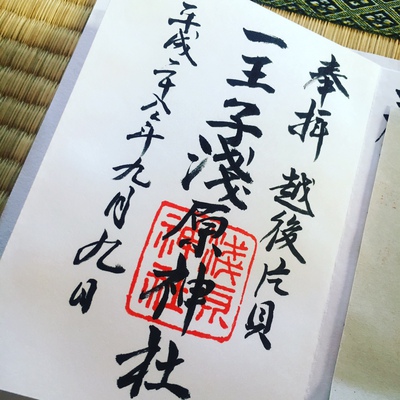 奉拝 越後片貝
一王子浅原神社
浅原
神社
平成二十八年九月九日